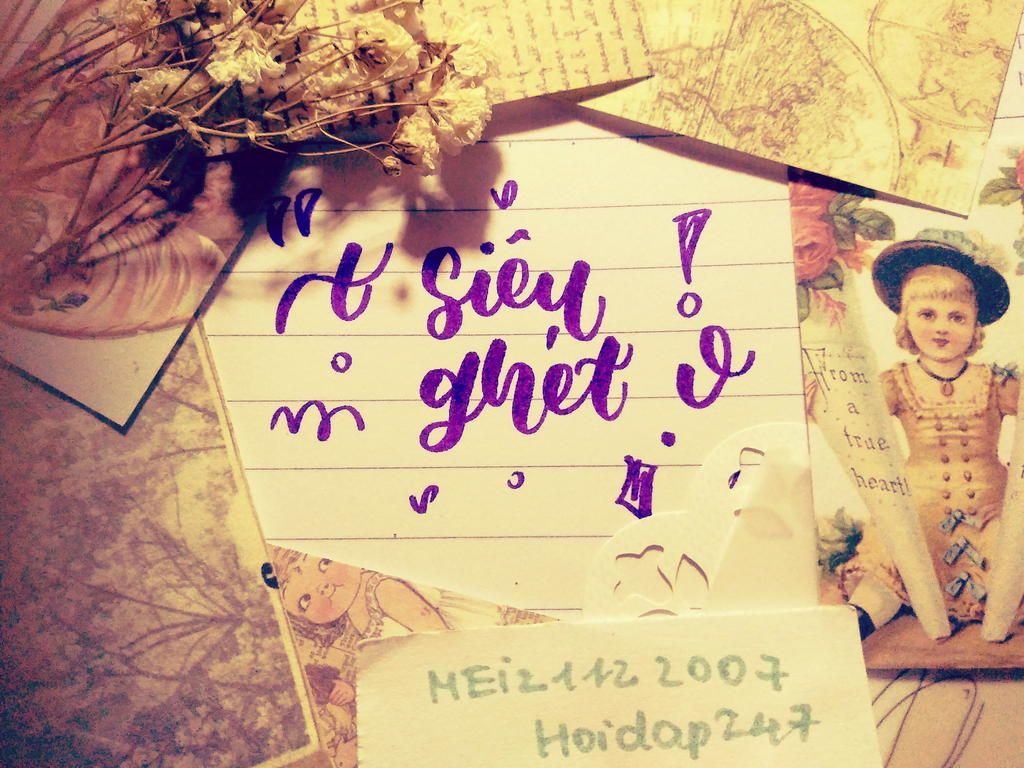 “ t siêu !
ghét
From
a
true
heart
MEiz112 2007
Hoidap247